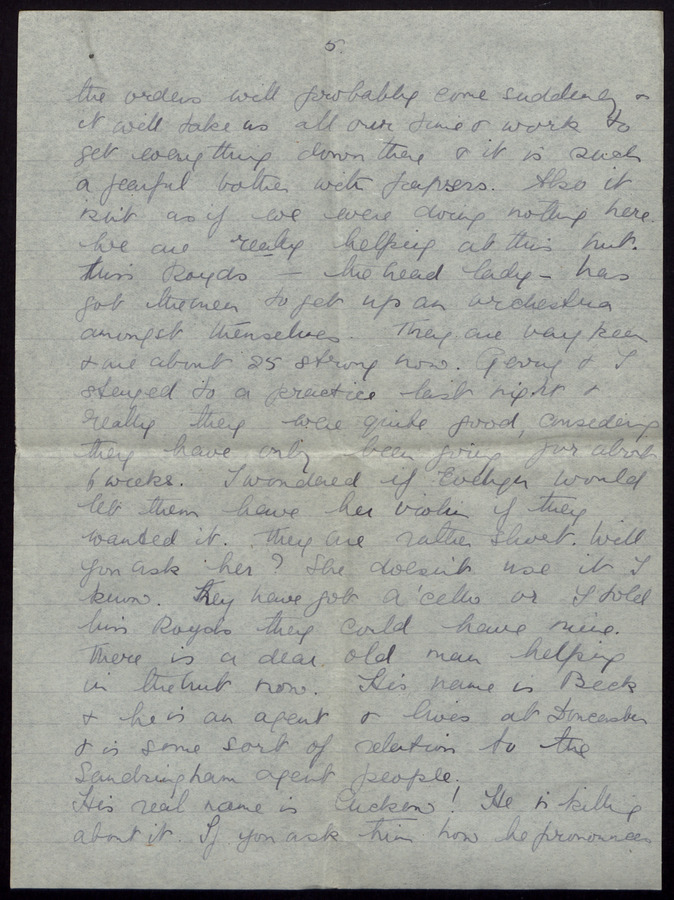 5.
the orders will probably come suddenly &
it will take us all our time & work to
get everything down there & it is such
a fearful bother with papers. Also it
isn't as if we were doing nothing here
We are really helping at this hut.
Miss Royds — the head lady — has
got the men to get up an orchestra
amongst themselves. They are very keen
& are about 25 strong now. Gerry & I
stayed to a practice last night &
really they were quite good, considering
they have only been going for about
6 weeks. I wondered if Evelyn would
let them have her violin if they
wanted it. They are rather short. Will
you ask her? She doesn't use it I
know. They have got a 'cello or I told
Miss Royds they could have mine.
There is a dear old man helping
in the hut now. His name is Beck
& he is an agent & lives at Doncaster
& is some sort of relation to the
Sandringham agent people.
His real name is ! He is killing
about it. If you ask him how he pronounces